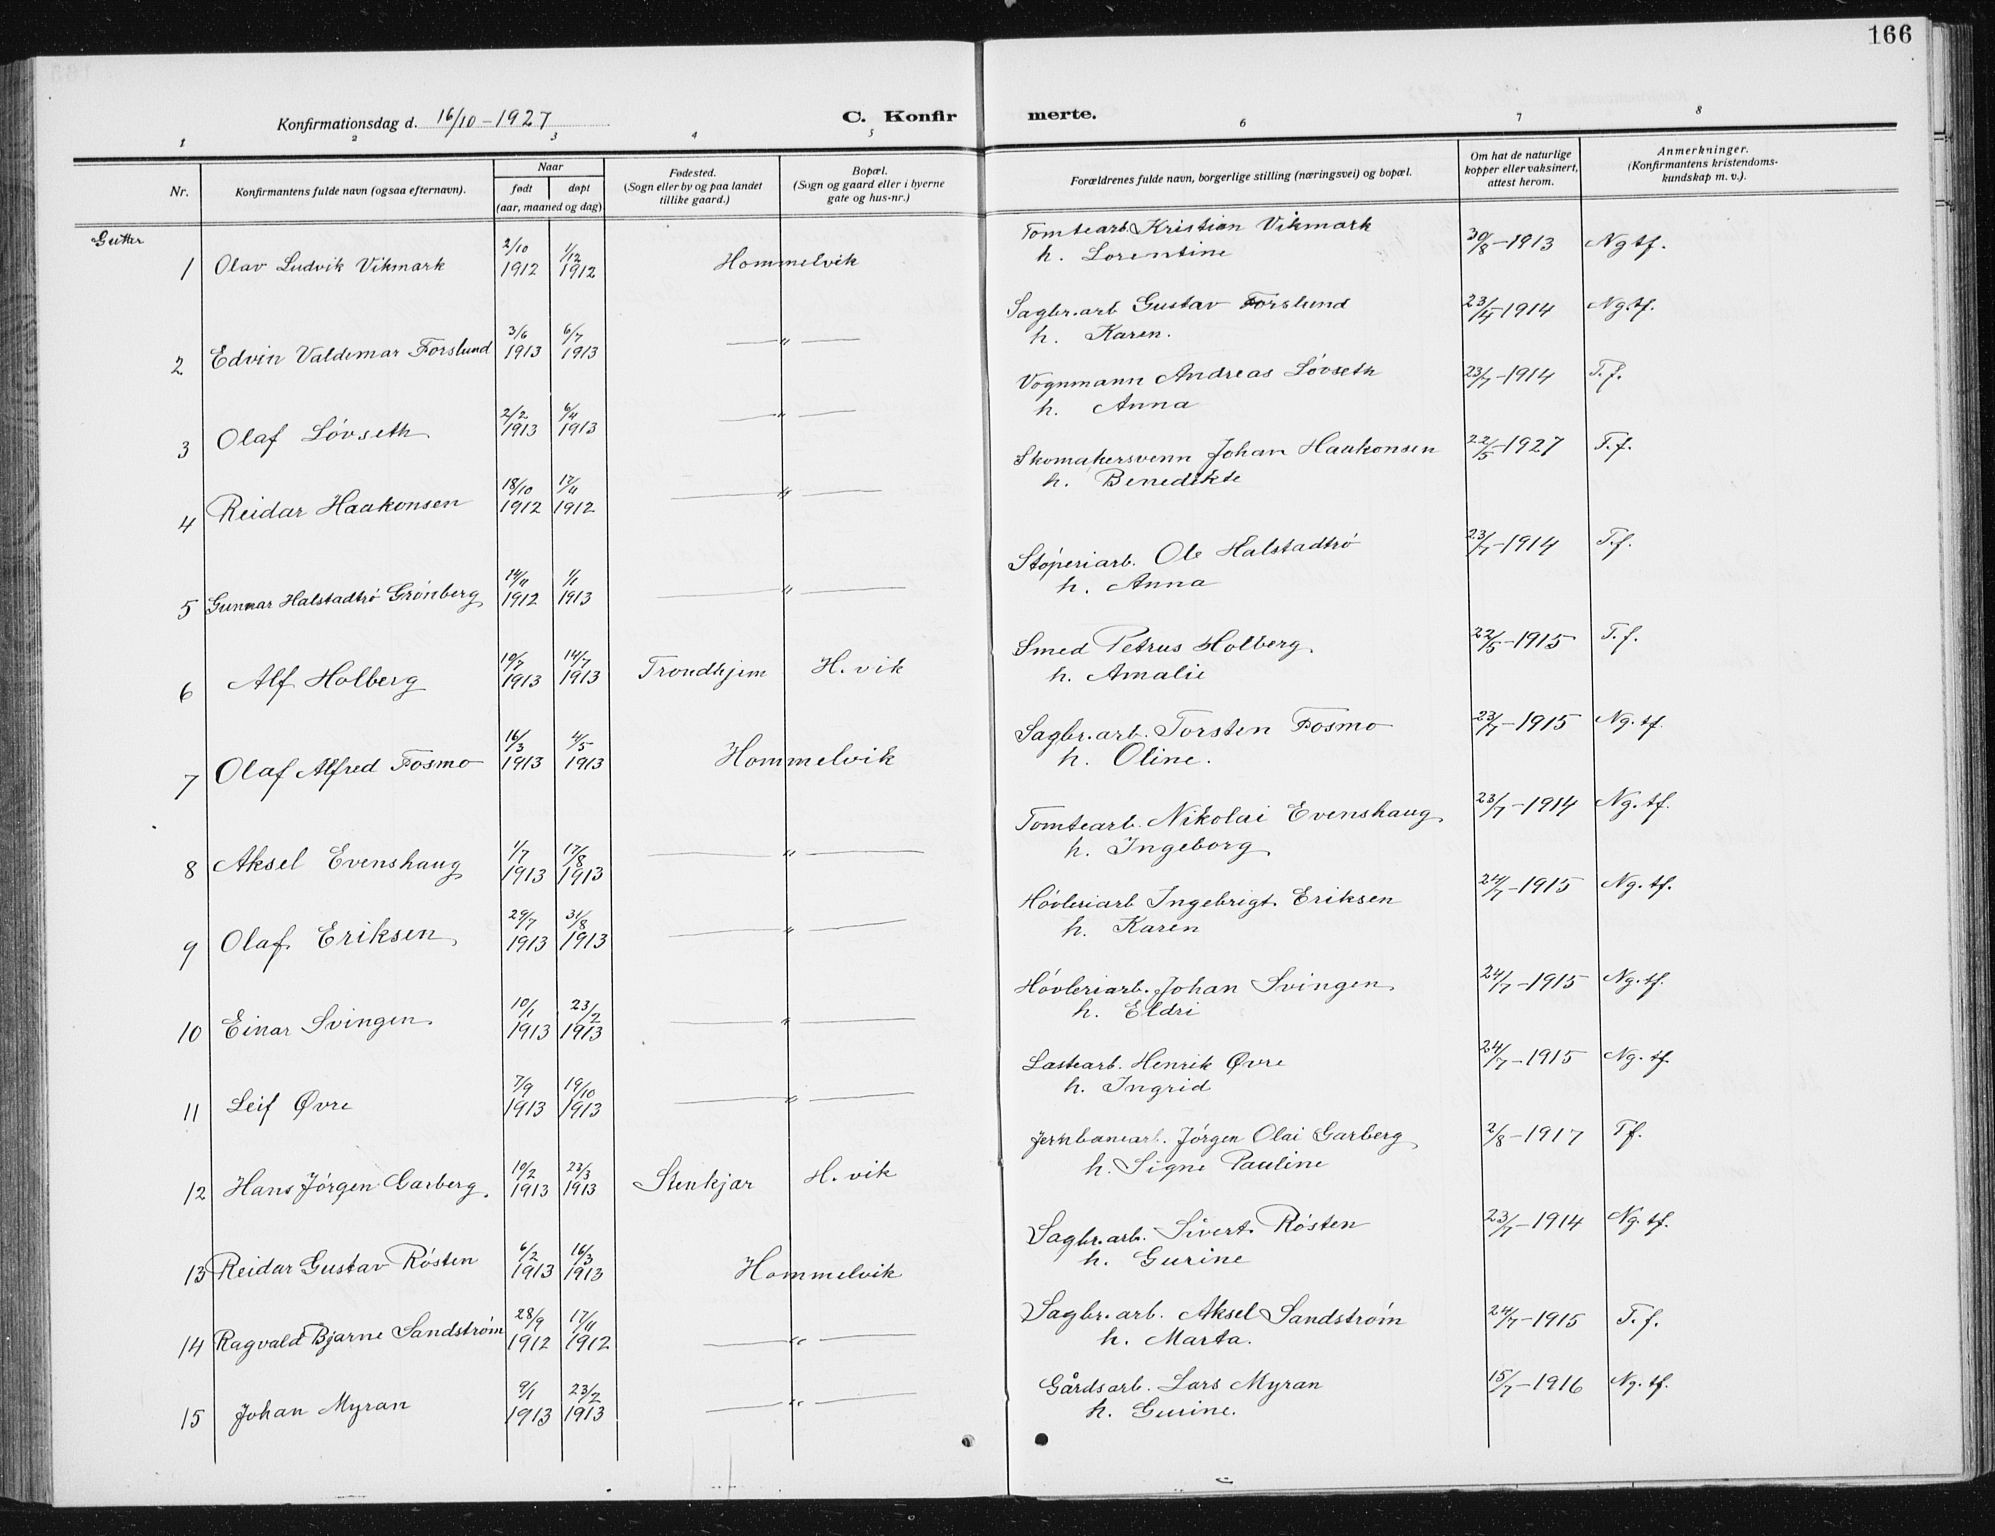 166
Konfirmationsdag d. 16/10-1927 C. Konfirmerte.
1 2 3 4 5 6 7 8
Nr. Konfirmantens fulde navn (ogsaa efternavn). Naar født døpt (aar, maaned og dag) Fødested. (Sogn eller by og paa landet tillike gaard.) Bopæl. (Sogn og gaard eller i byerne gate og hus-nr.) Forældrenes fulde navn, borgerlige stilling (næringsvei) og bopæl. Om hat de naturlige kopper eller vaksinert, attest herom. Anmerkninger. (Konfirmantens kristendomskundskap m. v.).
Gutter
1 Olav Ludvik Vikmark 2/10 1912 1/12 1912 Hommelvik Tomtearb. Kristian Vikmark 30/8-1913 Ng tf.
h. Lorentine
2 Edvin Valdemar Forslund 3/6 1913 6/7 1913 —„— Sagbr.arb Gustav Forslund 23/4-1914 Ng.tf.
h. Karen.
3 Olaf Løvseth 2/2 1913 6/4 1913 —„— Vognmann Andreas Løvseth 23/7-1914 T.f.
h. Anna
4 Reidar Haakonsen 18/10 1912 17/11 1912 —„— Skomakersvenn Johan Haakonsen 22/5-1927 T.f.
h. Benedikte
5 Gunnar Halstadtrø Grønberg 14/11 1912 1/1 1913 —„— Støperiarb. Ole Halstadtrø 23/7-1914 T.f.
h. Anna
6 Alf Holberg 10/7 1913 14/7 1913 Trondhjem H.vik Smed Petrus Holberg. 22/5-1915 T.f.
h. Amalie
7 Olaf Alfred Fosmo 16/3 1913 4/5 1913 Hommelvik Sagbr.arb. Torsten Fosmo 23/7-1915 Ng. tf.
h. Oline.
8 Aksel Evenshaug 1/7 1913 17/8 1913 —„— Tomtearb. Nikolai Evenshaug 23/7-1914 Ng. tf.
h. Ingeborg
9 Olaf Eriksen 29/7 1913 31/8 1913 —„— Høvleriarb Ingebrigt Eriksen 24/7-1915 Ng. tf.
h. Karen
10 Einar Svingen 10/1 1913 23/2 1913 —„— Høvleriarb. Johan Svingen 24/7-1915 Ng. tf.
h. Eldri
11 Leif Øvre 7/9 1913 19/10 1913 —„— Lastearb. Henrik Øvre 24/7-1915 Ng. tf.
h. Ingrid
12 Hans Jørgen Garberg. 10/2 1913 23/3 1913 Stenkjær H.vik Jernbanearb. Jørgen Olai Garberg 2/8-1917 Tf.
h. Signe Pauline
13 Reidar Gustav Røsten 6/2 1913 16/3 1913 Hommelvik Sagbr.arb. Sivert Røsten 23/7-1914 Ng. tf.
h. Gurine
14 Ragvald Bjarne Sandstrøm 28/9 1912 17/11 1912 —„— Sagbr.arb. Aksel Sandstrøm 24/7-1915 T.f.
h. Marta.
15 Johan Myran 9/1 1913 23/2 1913 —„— Gårdsarb. Lars Myran 15/7-1916 Ng. tf.
h. Gurine.